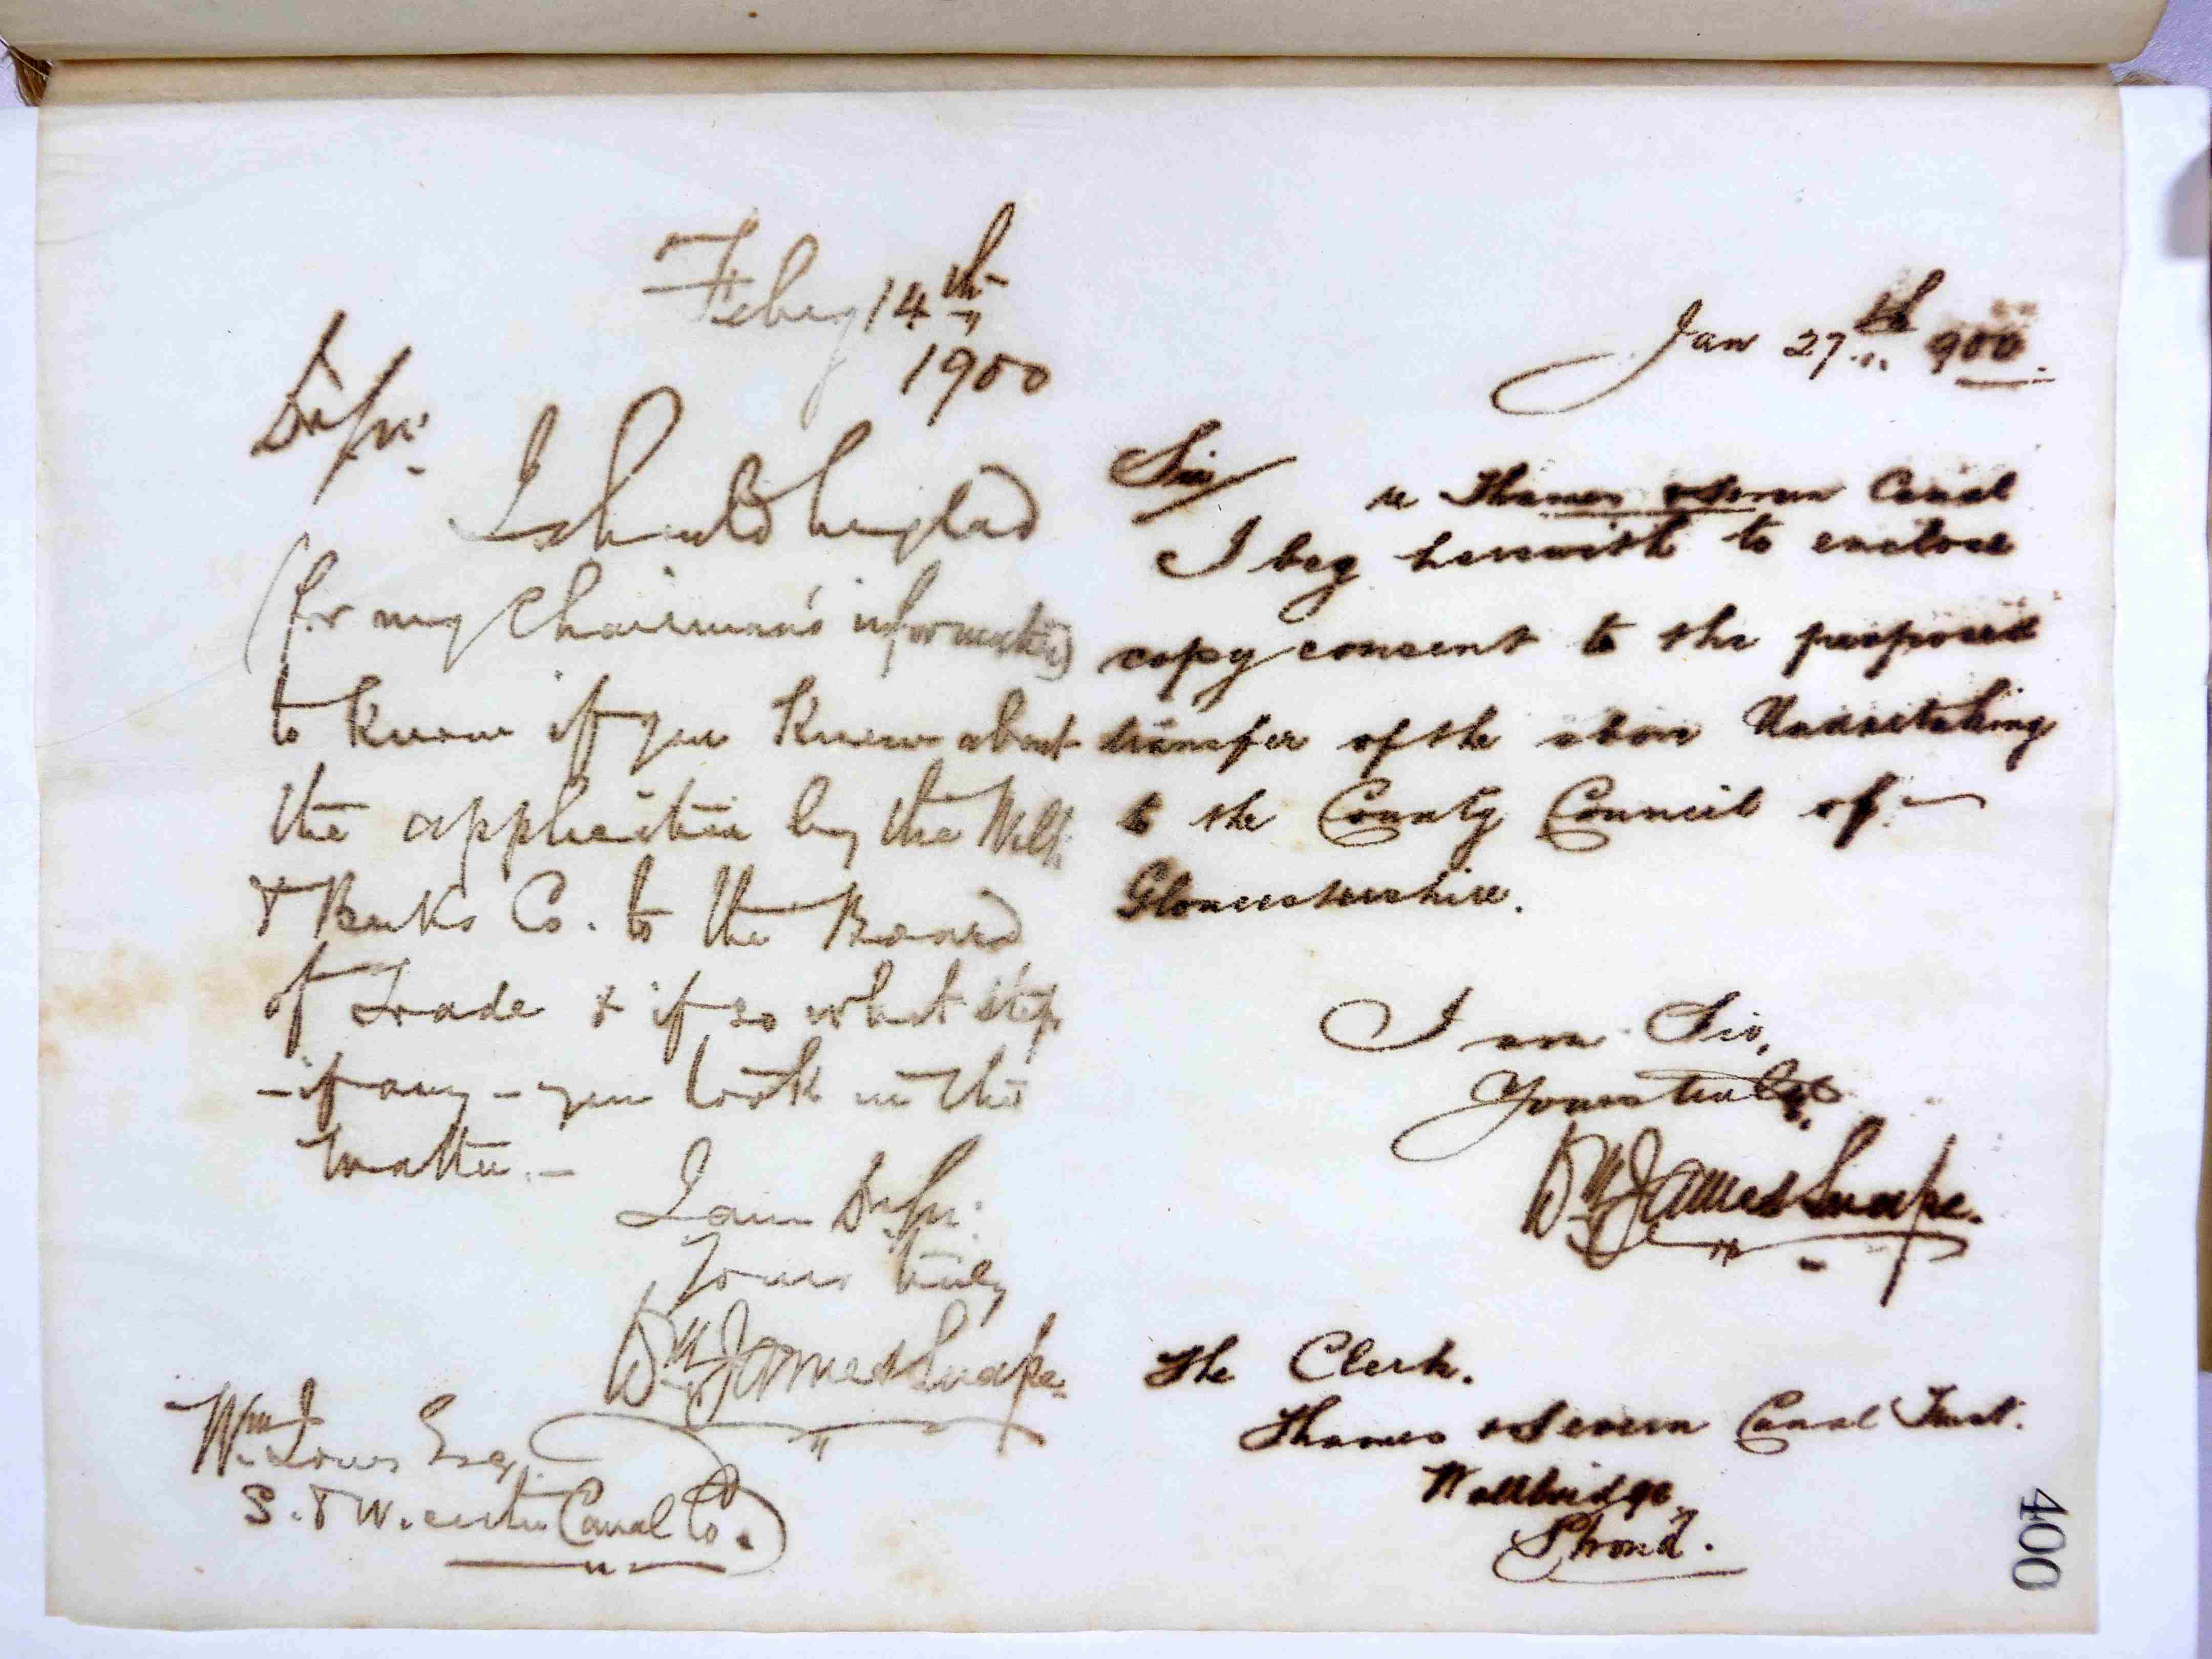 Feby 14th
1900
Dr Sir.
I should be glad
(for my Chairman's information)
to know if you knew about
the application by the Wilts
& Berks Co. to the Board
of Trade & if so what steps
- if any - you took in the
matter. -
I am Dr Sir.
Yours truly
Wm James Snape.
Wm J Esq
S. & W. Canal Co.
Jan 27th 900.
Sir/
re Thames & Severn Canal
I beg herewith to enclose
copy consent to the proposed
transfer of the above Undertaking
to the County Council of -
Gloucestershire.
I am Sir,
Yours truly
Wm James Snape.
The Clerk.
Thames & Severn Canal Trust.
Wallbridge,
Stroud.
400